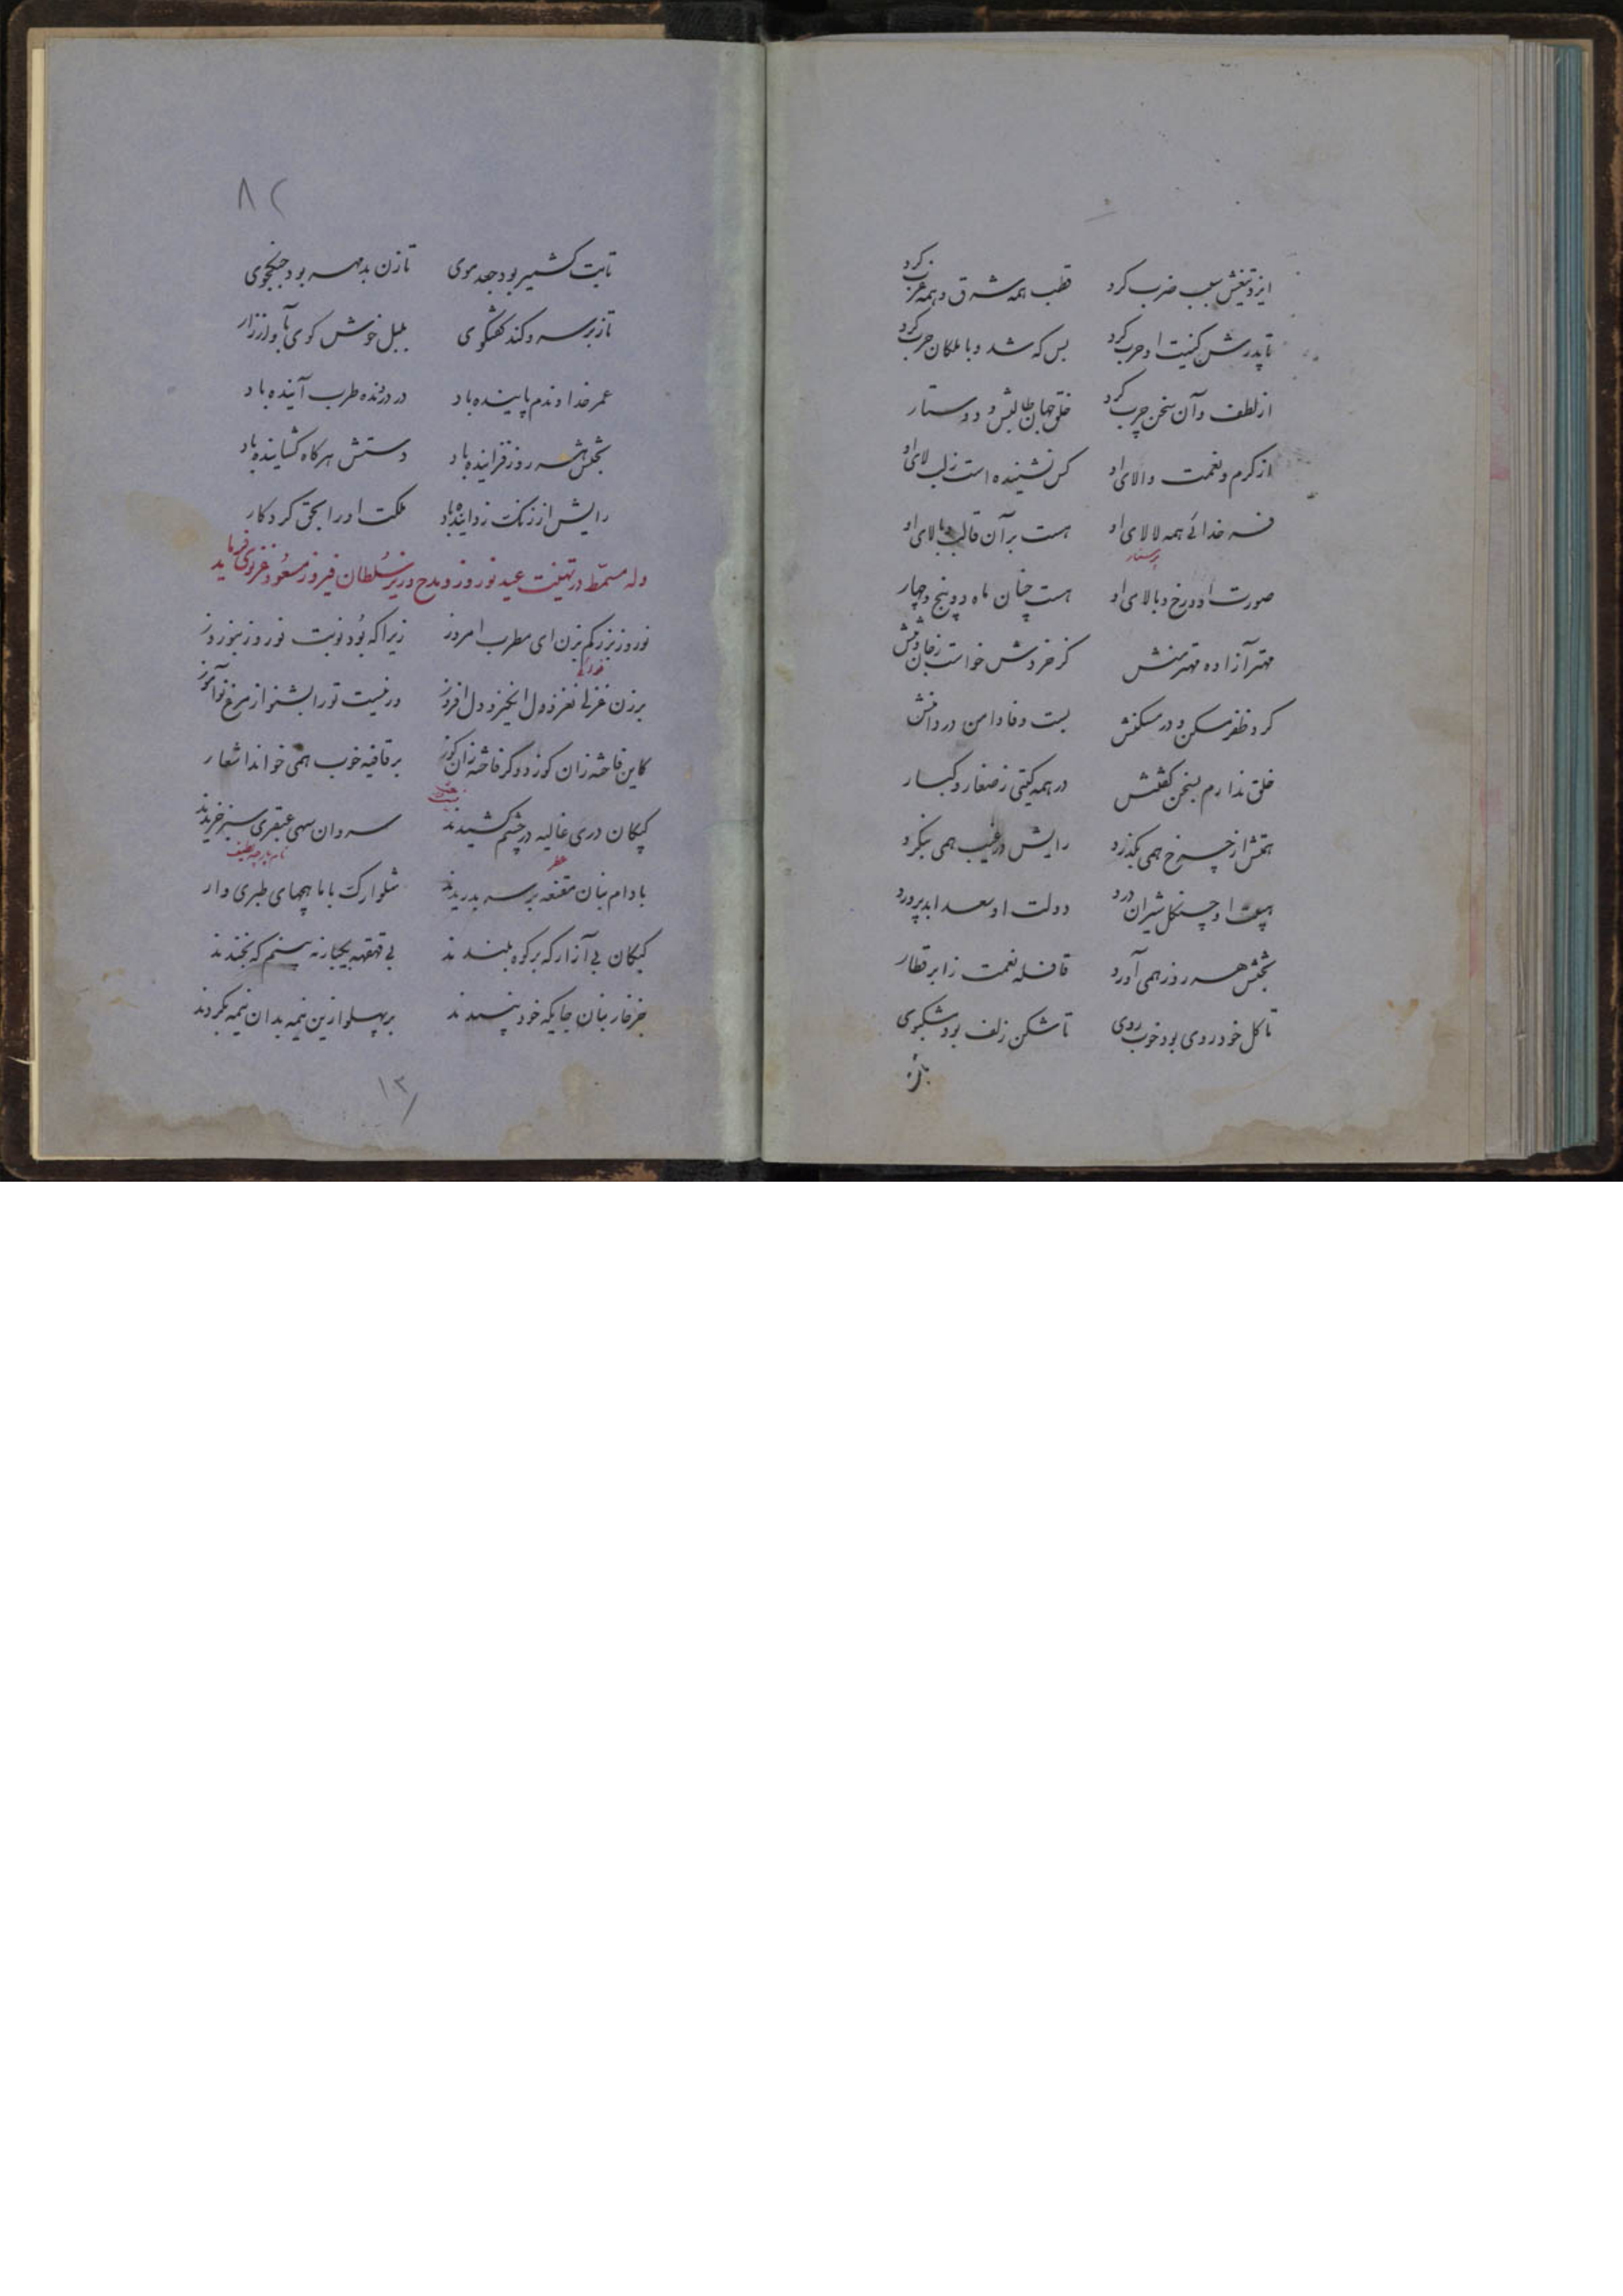 ایزد تیغش سبب ضرب کرد قطب همه شرق و همه غرب کرد
تا پدرش کنیت او حرب کرد بس که شد و با ملکان حرب کرد
از لطف و آن سخن چرب کرد خلق جهان طالبش و دوستار
از کرم و نعمت والای او کس نشنیده است ز لب لای او
فر خدائی همه لالای او هست بر آن قالب و بالای او
پرستار
صورت او و رخ و بالای او هست چنان ماه دو پنج و چهار
مهتر آزاده مهتر منش کز خردش خواست ز جان و تنش
کرد ظفر مسکن و در مسکنش بست وفا دامن در دامنش
خلق ندارم بسخن گفتنش در همه گیتی ز صغار و کبار
همتش از چرخ همی بگذرد رایش در غیب همی بنگرد
هیبت او چنگل شیران درد دولت او سعد ابد پرورد
بخشش هر روز همی آورد قافله نعمت زابر قطار
تا گل خودروی بود خوب روی تا شکن زلف بود مشکبوی
تا بت
۸۲
تا بت کشمیر بود جعد موی تا زن بدمهر بود جنگجوی
تا ز بر سرو کند گفتگوی بلبل خوش گوی بآواز زار
عمر خداوندم پاینده باد در دزنده طرب آینده باد
بختش هر روز فزاینده باد دستش هر گاه گشاینده باد
رایش از زنگ زداینده باد ملکت او را بحق کردگار
وله مسمّط در تهنیت عید نوروز و مدح وزیر سُلطان فیروز مسعُود غزنوی فرماید
نوروز بزرگم بزن ای مطرب امروز زیرا که بُود نوبت نوروز بنوروز
برزن غزلی نغز و دل انگیز و دل افروز ور نیست تو را بشنو از مرغ نوآموز
کاین فاخته زان گوز و دگر فاخته زان گوز بر قافیه خوب همی خواند اشعار
کبکان دری غالیه در چشم کشیدند سروان سهی عبقری سبز خریدند
عطر
بادام بنان مقنعه بر سر بدریدند شلوارک با ما بچهای طبری وار
کبکان بی آزار که بر کوه بلندند بی قهقهه یکبار نه بینم که بخندند
جز خاربنان جایگه خود نپسندند بر پهلو ازین نیمه بدان نیمه بگردند
۱۳